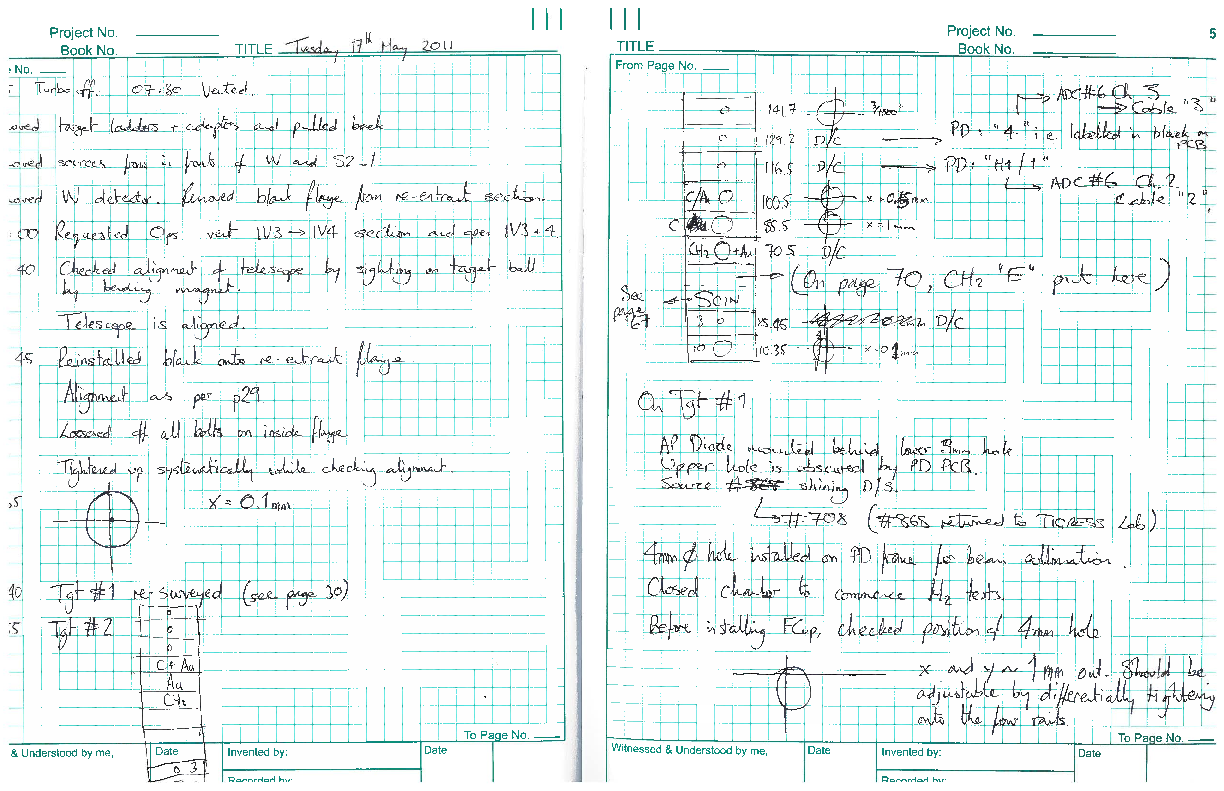 Project No.
Book No.
TITLE Tuesday 17th May 2011
No.
Turbo off. 07:30 Vented.
oved target ladders + adaptors and pulled back
oved sources from in front of W and S2-1
oved W detector. Removed blank flange from re-entrant section.
00 Requested Ops vent IV3 → IV4 section and open IV3 + 4.
40 Checked alignment of telescope by sighting on target ball
by bending magnet.
Telescope is aligned.
45 Reinstalled blank onto re-entrant flange
Alignment as per p29
Loosened off all bolts on inside flange
Tightened up systematically while checking alignment.
55
x = 0.1mm
40 Tgt #1 re-surveyed (see page 30)
5 Tgt #2
C+Au
Au
CH2
To Page No.
& Understood by me,
Date
Invented by:
Date
0 3
Recorded by:
Project No.
Book No.
5
TITLE
From Page No.
141.7
129.2 D/C
116.5 D/C
C/Au 100.5
C 88.5 x = 1mm
CH2 + Au 70.5 D/C
ADC#6 Ch. 3
Cable "3"
PD: "4" i.e. labelled in black on
PCB
PD: "H1/1"
ADC#6 Ch. 2
Cable "2"
(On page 70, CH2 "E" put here)
See page 67
SCIN
3 D/C
10 110.35 x = 0.1mm
On Tgt #1
Al Diode mounted behind lower 3mm hole
Upper hole is obscured by PD PCB.
Source shining D/S.
#708 (#868 returned to TIGRESS Lab)
4mm ø hole installed on PD frame for beam collimation.
Closed chamber to commence H2 tests.
Before installing FCup, checked position of 4mm hole
x and y ~ 1mm out. Should be
adjustable by differentially tightening
onto the four rails.
To Page No.
Witnessed & Understood by me,
Date
Invented by:
Date
Recorded by: